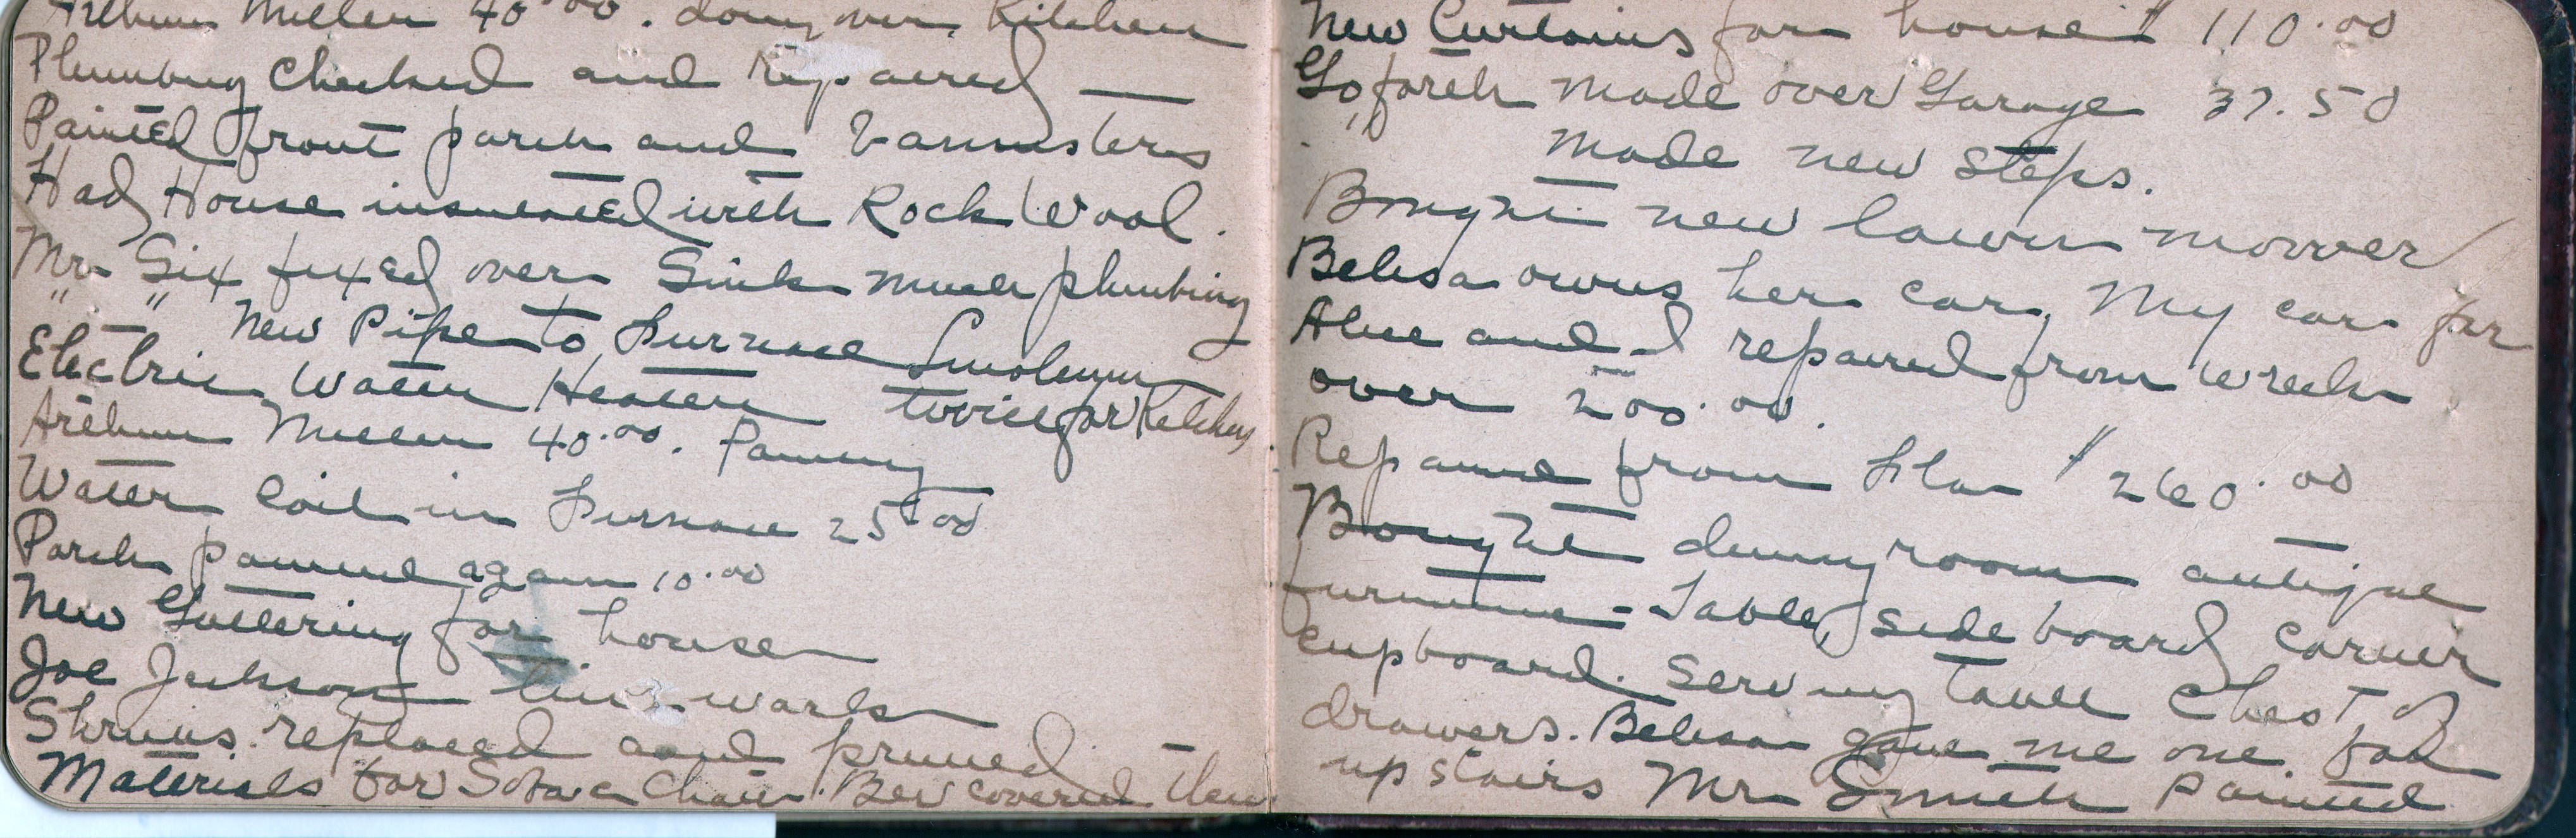 Arthur Miller 40.00. doing over Kitchen
Plumbing Checked and Repaired —
Painted front porch and bannisters
Had House insulated with Rock Wool.
Mr Six fixed over Sink much plumbing
" " New Pipe to Furnace Linoleum
Electric Water Heater twice for Kitchen
Arthur Miller 40.00.
Water Coil in Furnace 25.00
Porch painted again 10.00
New Guttering for house
Joe Jackson work
Shrubs replaced and pruned
Materials for Sofa Chair. Bev covered them
New Curtains for house $110.00
Goforth made over Garage 37.50
" made new steps.
Bought new lawn mower
Belisa owns her car, My car for
Alice and I repaired from wreck
over 200.00.
Repaired from $260.00
Bought dining room antique
furniture - Table, side board, corner
cupboard. Serving table Chest of
drawers. Belisa gave me one for
up stairs Mr Smith painted